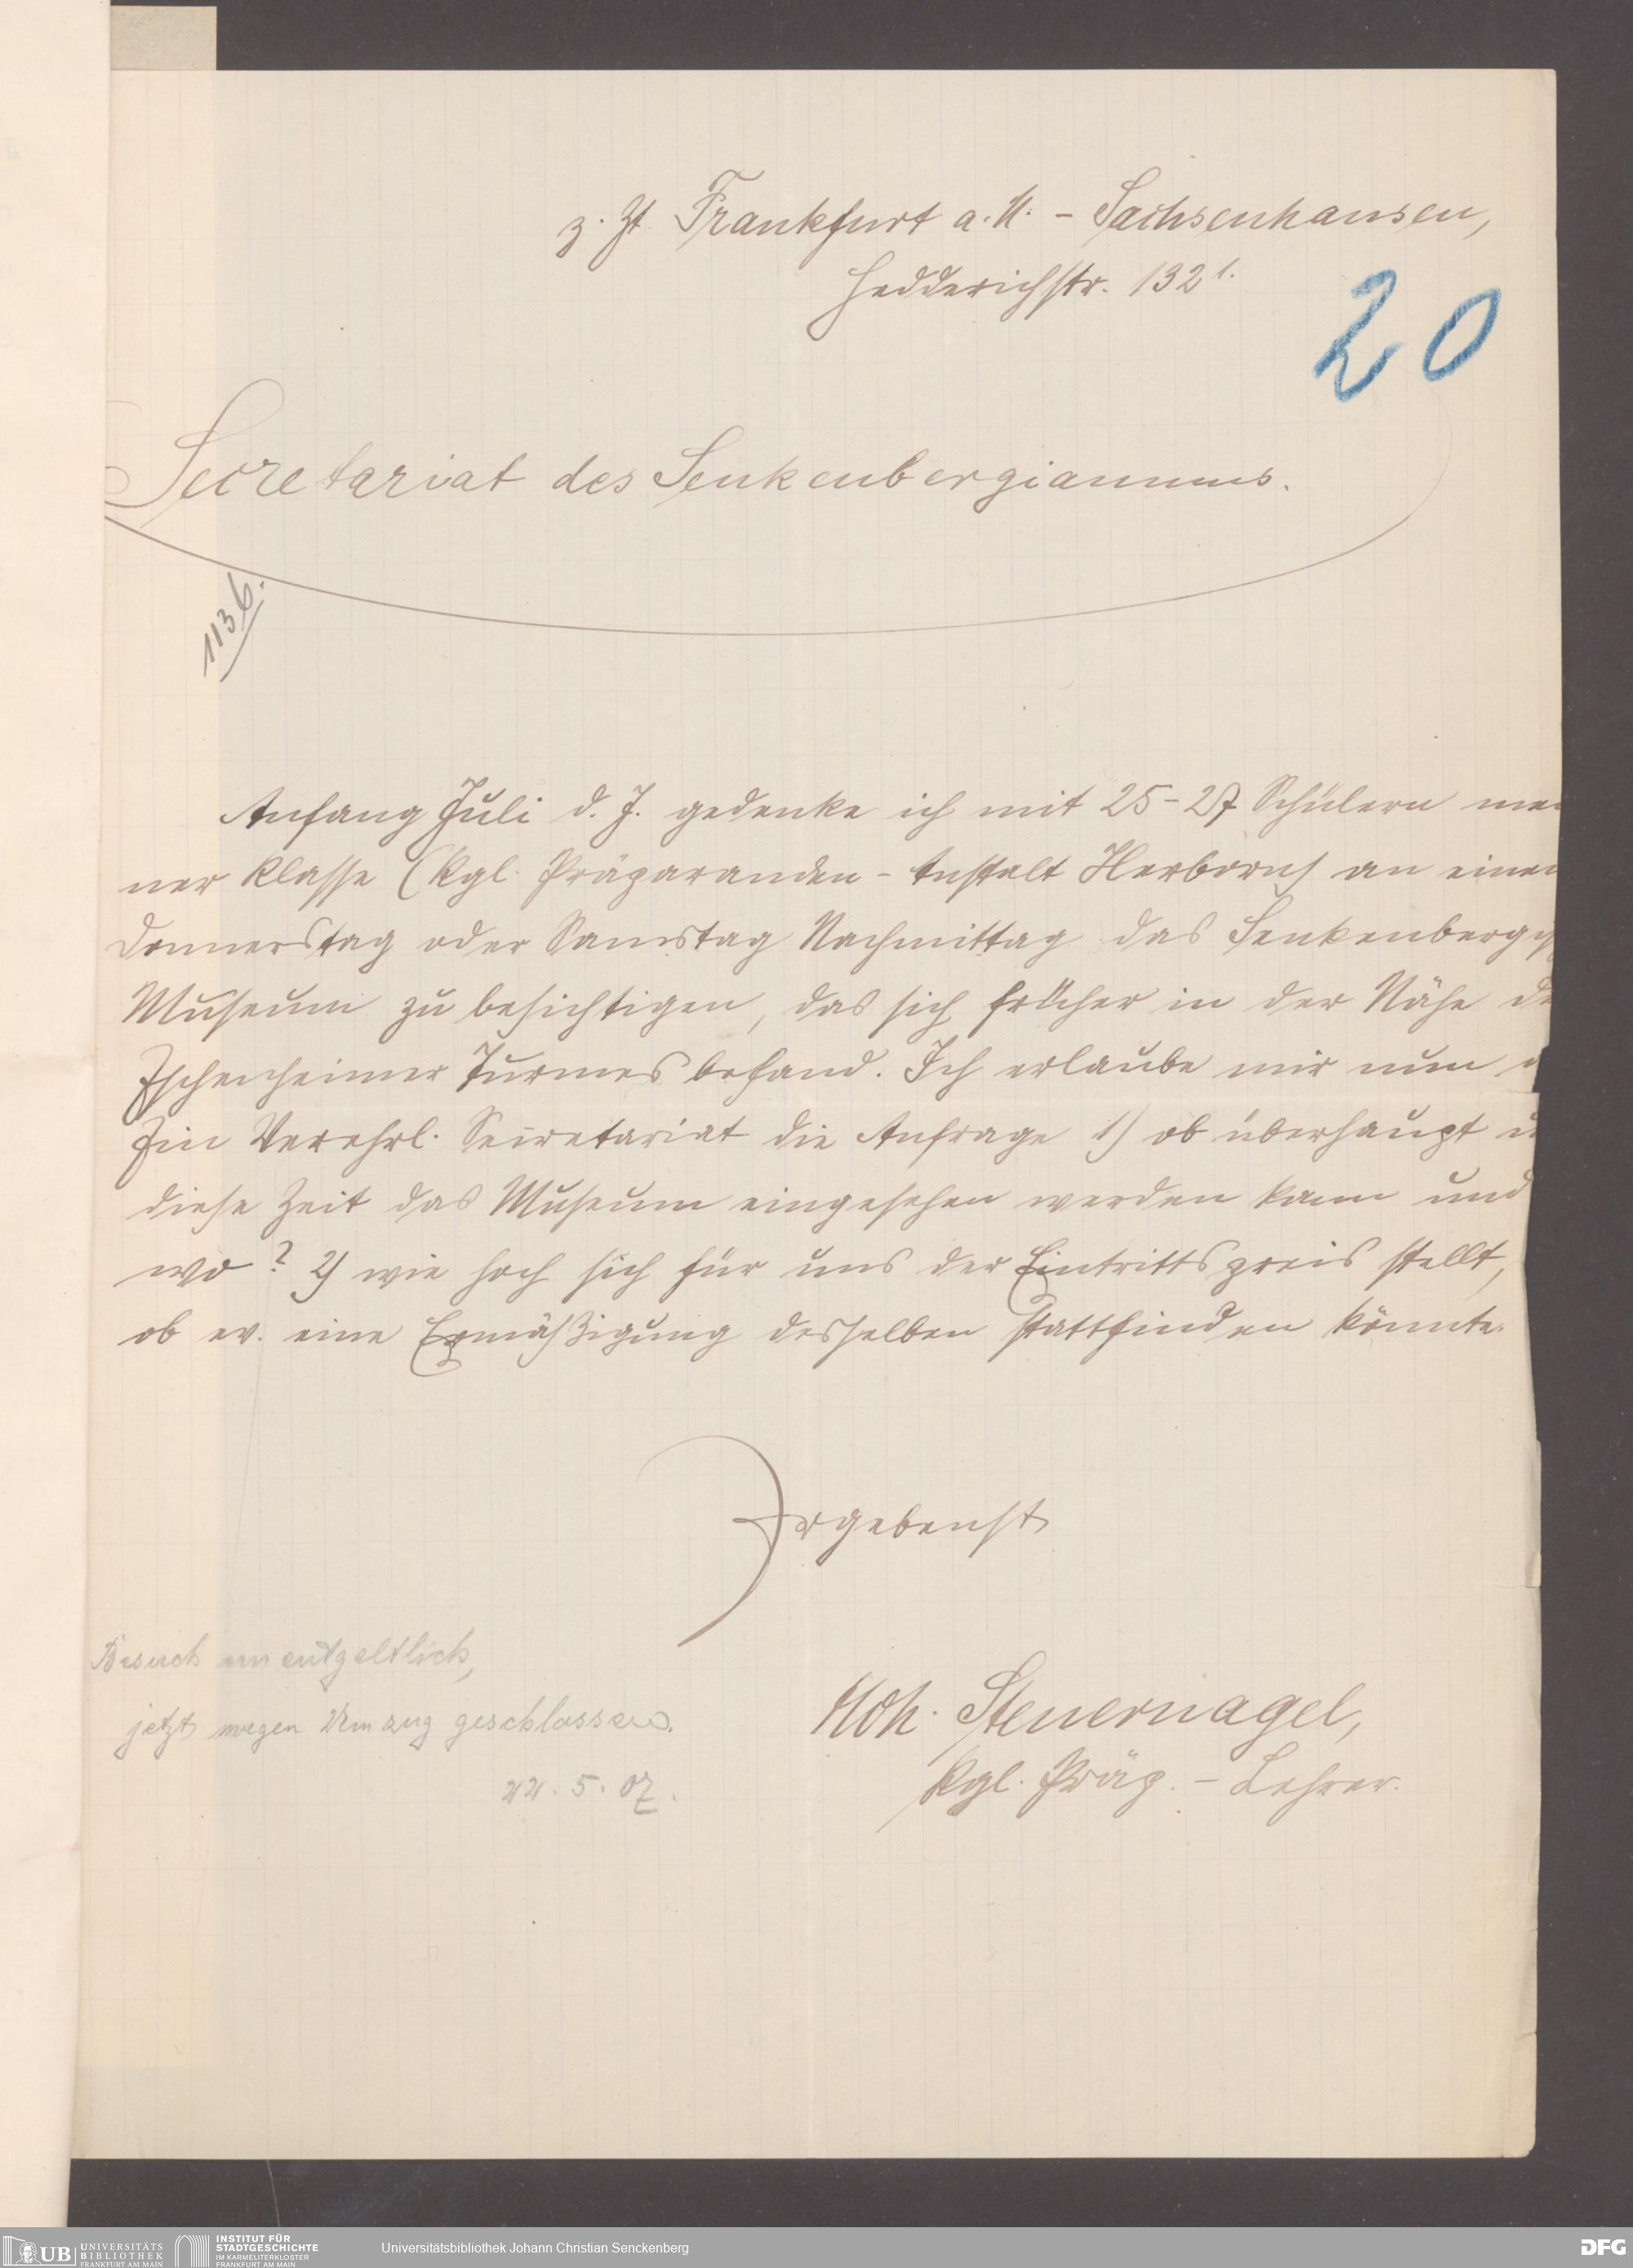 z. Zt. Frankfurt a. M. - Sachsenhausen,
Hedderichstr. 132 I.
20
Secretariat des Senkenbergianums.
1136.
Anfang Juli d. J. gedenke ich mit 25-27 Schülern mei
ner Klasse (Kgl. Präparanden-Anstalt Herborn) an einem
Donnerstag oder Samstag Nachmittag das Senkenbergsch
Museum zu besichtigen, das sich früher in der Nähe de
Eschenheimer Turmes befand. Ich erlaube mir nun a
Ein Verehrl. Secretariat die Anfrage 1) ob überhaupt u
diese Zeit das Museum eingesehen werden kann und
wo? 2) wie hoch sich für uns der Eintrittspreis stellt,
ob ev. eine Ermäßigung desselben stattfinden könnte.
Ergebenst
Steuernagel,
Kgl. Präp. - Lehrer.
Besuch unentgeltlich,
jetzt wegen Umzug geschlossen.
22. 5. 07.
UB UNIVERSITÄTS
BIBLIOTHEK
FRANKFURT AM MAIN
INSTITUT FÜR
STADTGESCHICHTE
IM KARMELITERKLOSTER
FRANKFURT AM MAIN
Universitätsbibliothek Johann Christian Senckenberg
DFG